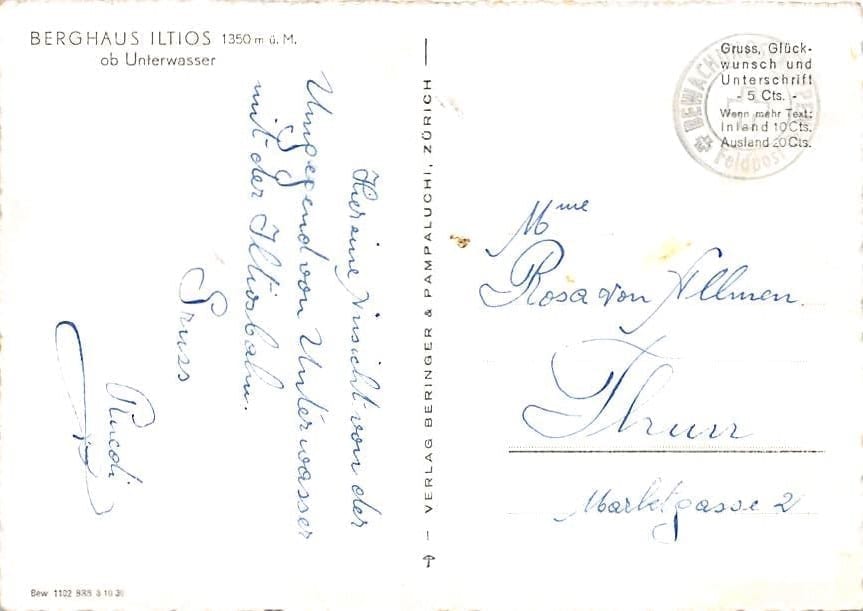 BERGHAUS ILTIOS 1350 m ü. M.
ob Unterwasser
Hier eine Ansicht von der
Umgegend von Unterwasser
mit der Iltiosbahn.
Gruss
Ruedi
Bew 1102 BRB 3 10 39
— VERLAG BERINGER & PAMPALUCHI, ZÜRICH —
Gruss, Glück-
wunsch und
Unterschrift
- 5 Cts. -
Wenn mehr Text:
Inland 10 Cts.
Ausland 20 Cts.
BEWACHUNGS
Feldpost
Mme
Rosa von Allmen
Thun
Marktgasse 2